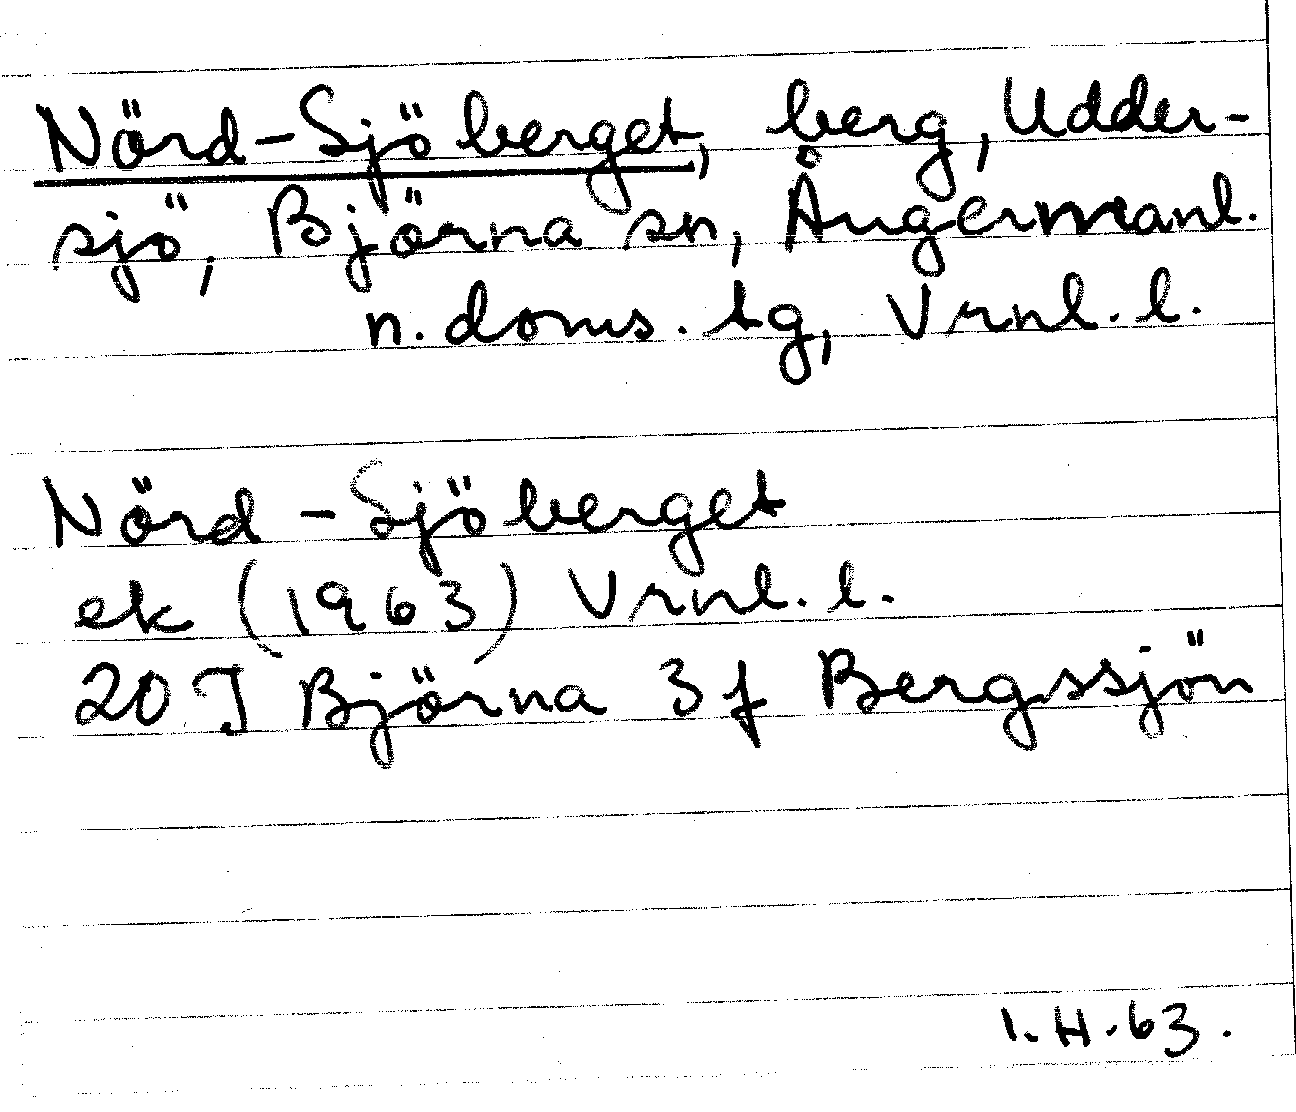 Nörd-Sjöberget, berg, Udder-
sjö, Björna sn, Ångermanl.
n. doms. tg, Vrnl. l.
Nörd-Sjöberget
ek (1963) Vrnl. l.
20 J Björna 3 f Bergssjön
I. H. 63.